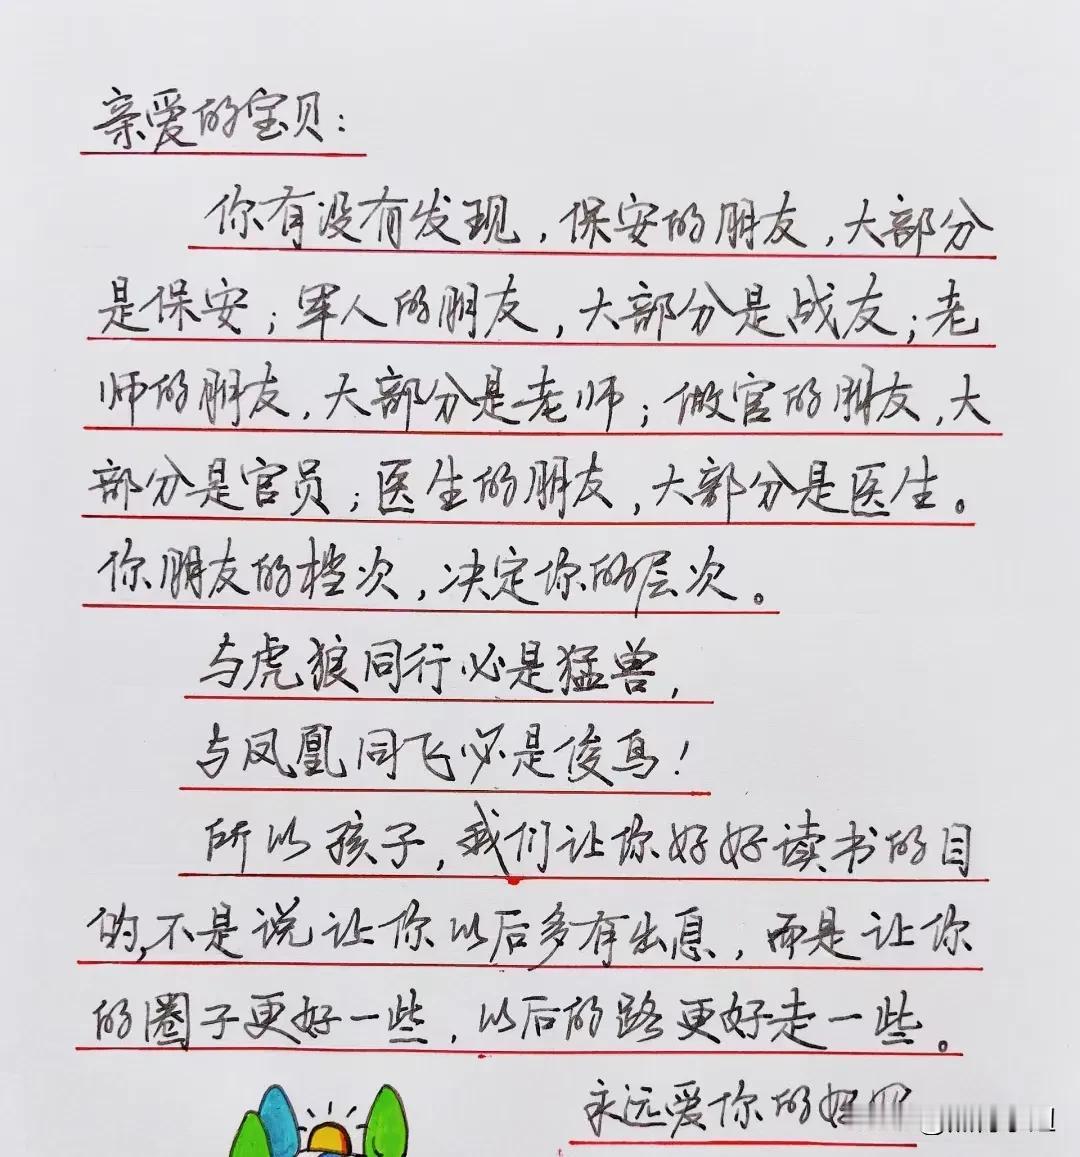 亲爱的宝贝：
你有没有发现，保安的朋友，大部分
是保安；军人的朋友，大部分是战友；老
师的朋友，大部分是老师；做官的朋友，大
部分是官员；医生的朋友，大部分是医生。
你朋友的档次，决定你的层次。
与虎狼同行必是猛兽，
与凤凰同飞必是俊鸟！
所以孩子，我们让你好好读书的目
的，不是说让你以后多有出息，而是让你
的圈子更好一些，以后的路更好走一些。
永远爱你的